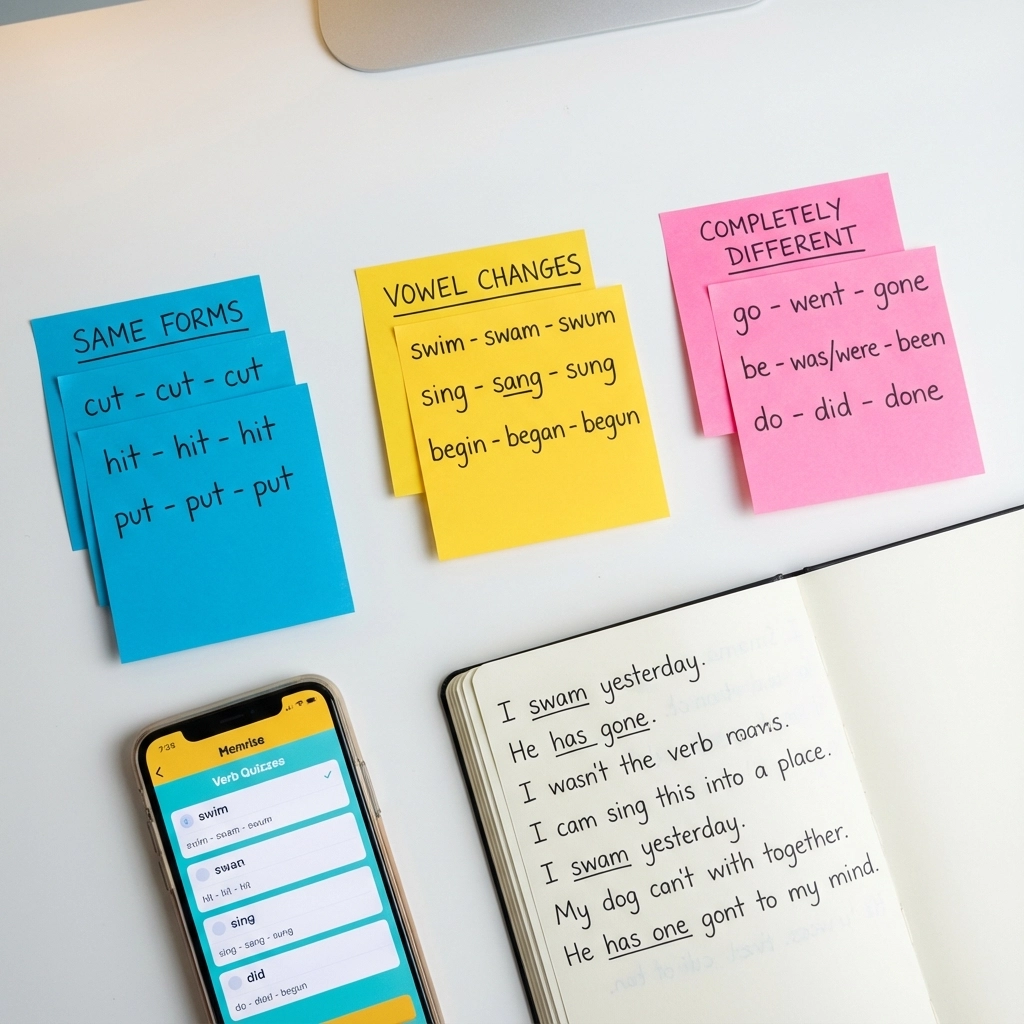 SAME FORMS
cut - cut - cut
hit - hit - hit
put - put - put
VOWEL CHANGES
swim - swam - swum
sing - sang - sung
begin - began - begun
COMPLETELY
DIFFERENT
go - went - gone
be - was/were - been
do - did - done
7:35
Memrise
Verb Quizzes
swim
swan
hit - hit - hit
sing
sing - sang - sung
did
do - - begun
I swam yesterday.
He has gone.
I wasn't the verb
I cam sing this into a place.
I swam yesterday.
My dog can't with together.
He has one gont to my mind.